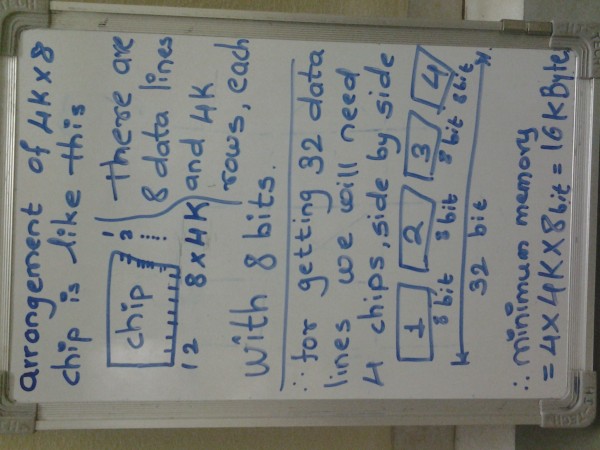 arrangement of 4K×8
chip is like this
chip
1
2
1 2 8 × 4K
There are
8 data lines
and 4K
rows, each
with 8 bits.
∴ for getting 32 data
lines we will need
4 chips, side by side
1 2 3 4
8 bit 8 bit 8 bit 8 bit
32 bit
∴ minimum memory
= 4 × 4K × 8 bit = 16 K Byte.